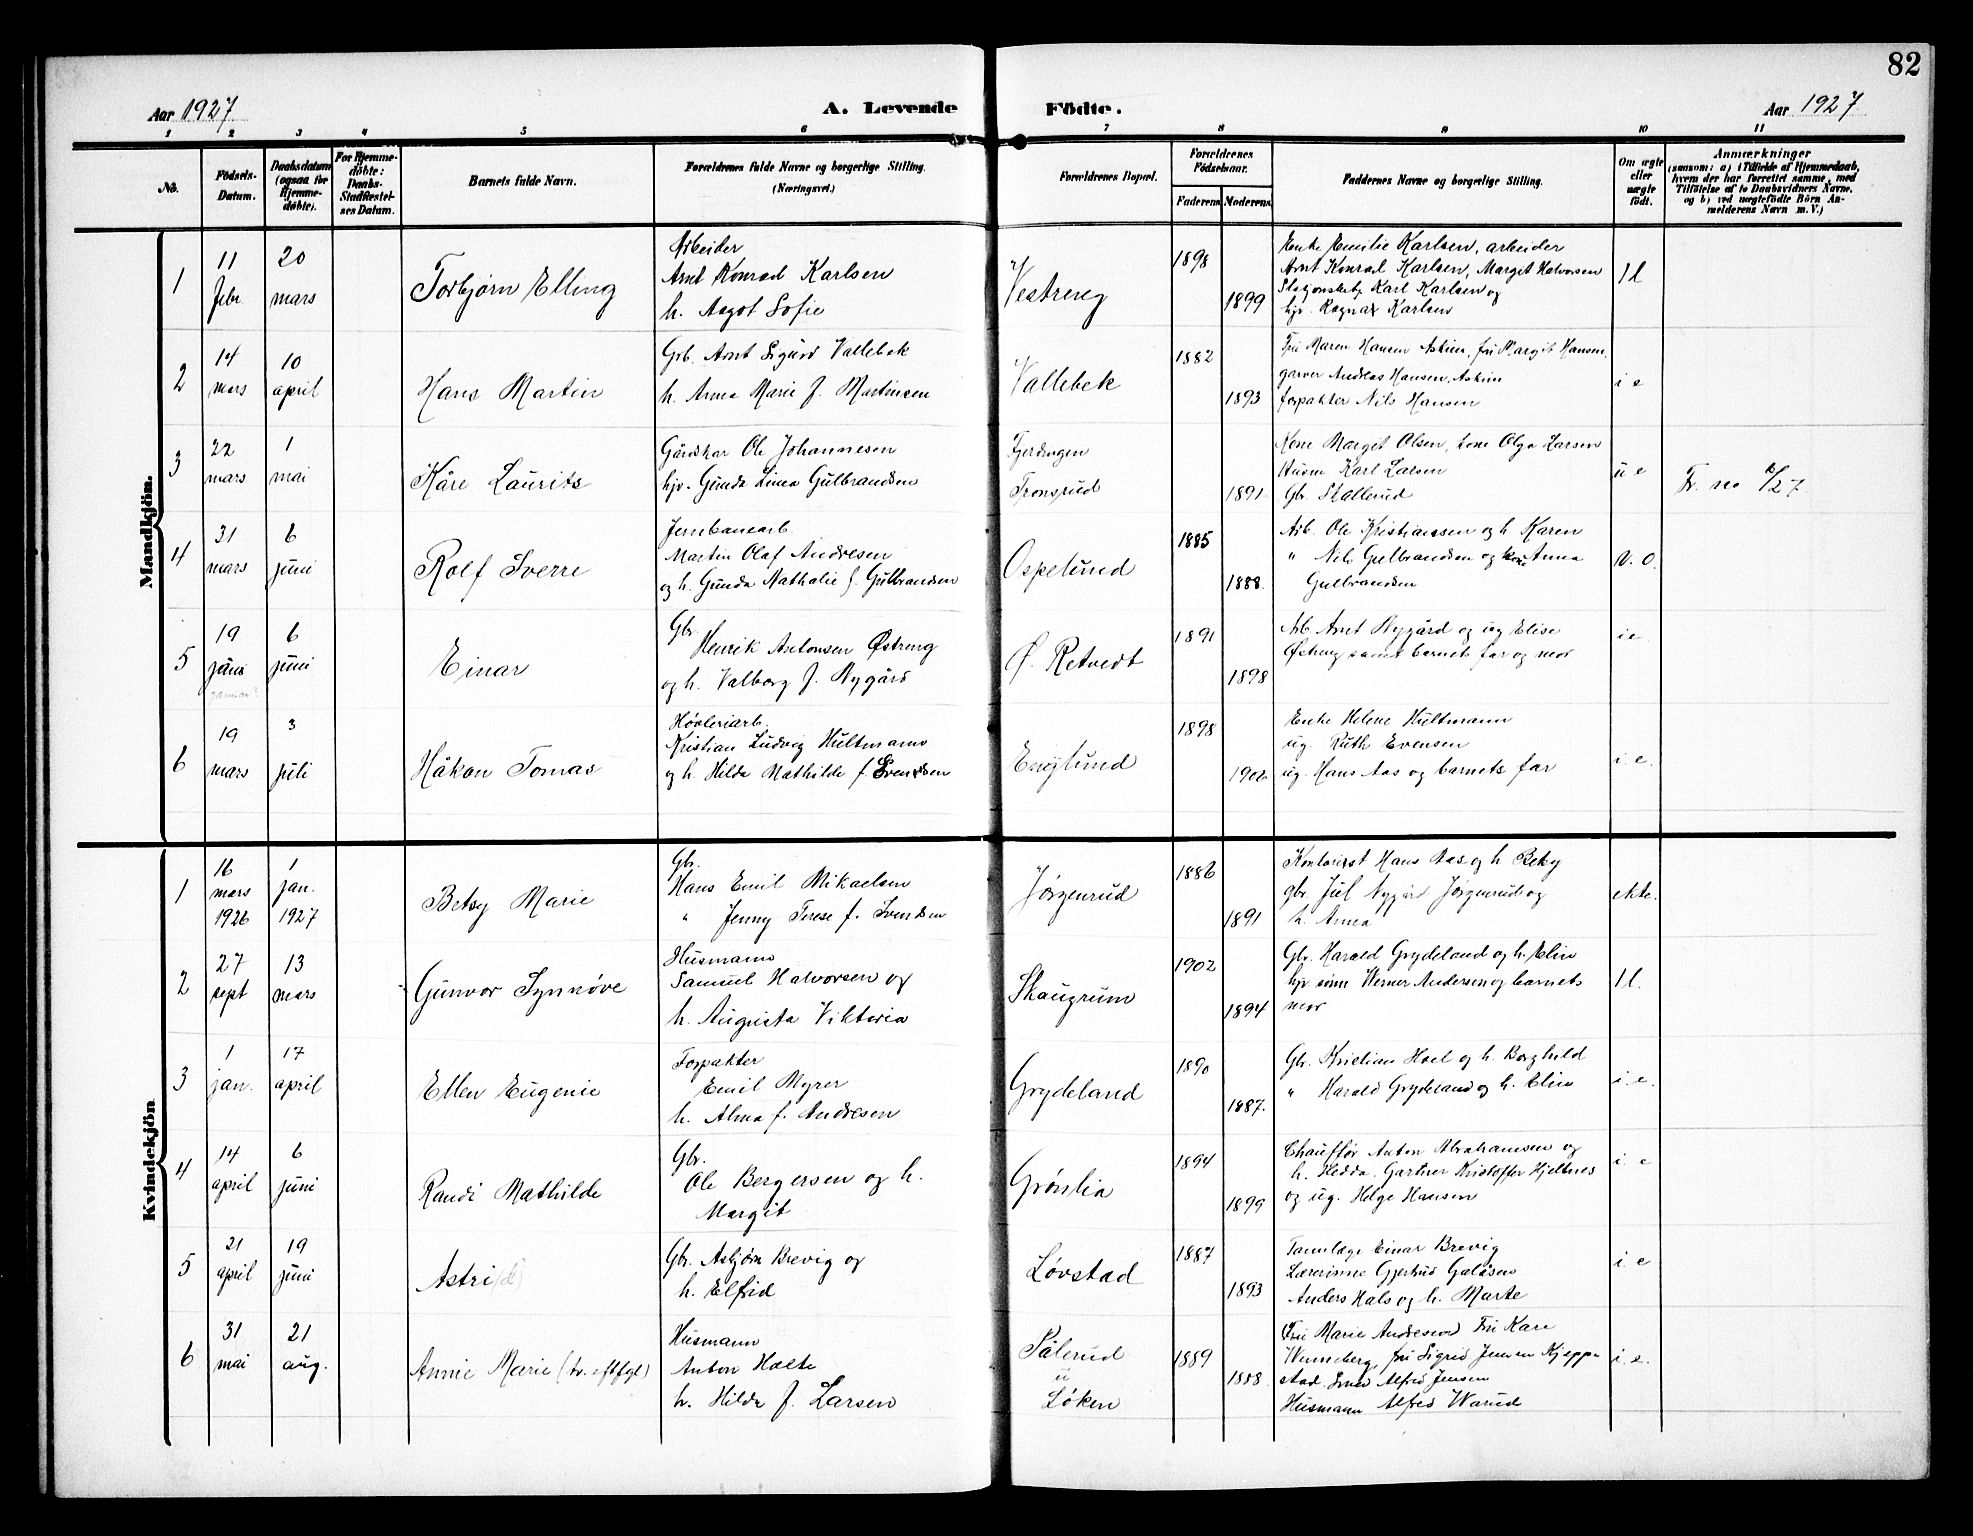 82
Aar 1927
A. Levende Födte.
Aar 1927
1 2 3 4 5 6 7 8 9 10 11
No.
Födsels-
Datum.
Daabsdatum
(ogsaa for
Hjemme-
döbte).
For Hjemme-
döbte:
Daabs-
Stadfæstel-
ses Datum.
Barnets fulde Navn.
Forældrenes fulde Navne og borgerlige Stilling.
(Næringsvei.)
Forældrenes Bopæl.
Forældrenes
Födselsaar.
Faderens Moderens
Faddernes Navne og borgerlige Stilling.
Om ægte
eller
uægte
född.
Anmærkninger
(saasom: a) i Tilfælde af Hjemmedaab,
hvem der har forrettet samme, med
Tilföielse af to Daabsvidners Navne,
og b) ved uægtefödte Börn An-
melderens Navn m. V.)
Mandkjön.
1
11
febr
20
mars
Torbjørn Elling
Arbeider
Arnt Konrad Karlsen
h. Aagot Sofie
Vestreng
1898
1899
Enke Emilie Karlsen, arbeider
Arnt Konrad Karlsen, Margit Halvorsen
Karl Karlsen og
hjv. Ragnar Karlsen
2
14
mars
10
april
Hans Martin
Grb. Arnt Sigurd Vallebek
h. Anna Marie f. Martinsen
Vallebek
1882
1893
Fru Maren Hansen Askim, fru Margit Hansen,
garver Andreas Hansen, Askim
forpakter Nils Hansen
i e
3
22
mars
1
mai
Kåre Laurits
Gårdskar Ole Johannesen
hjv. Gunda Linea Gulbrandsen
Fjerdingen
Tronsrud
1891
Kone Marget Olsen, kone Olga Larsen
Husm Karl Larsen
Gbr Skallerud
u e
4
31
mars
6
juni
Rolf Sverre
Jernbanearb.
Martin Olaf Andresen
og h. Gunda Nathalie f. Gulbrandsen
Ospelund
1885
1888.
Arb. Ole Kristiansen og h Karen
" Nils Gulbrandsen og kone Anna
Gulbrandsen
5
19
juni
januar?
6
juni
Einar
Gbr
Henrik Antonsen Østreng
og h. Valborg f. Nygård
Ø. Retvedt
1891
1898
Arb Arnt Nygård og ug Elise
Østreng samt barnets far og mor
i e.
6
19
mars
3
juli
Håkon Tomas
Høvleriarb.
Kristian Ludvig Hultmann
og h. Hilda Mathilde f Svendsen
Englund
1898
1902
Enke Helene Hultmann
ug. Ruth Evensen
ug. Hans Aas og barnets far
i. e.
Kvindekjön
1
16
mars
1926
1
jan.
1927
Betsy Marie
Gbr.
Hans Emil Mikaelsen
" Jenny Terese f. Svendsen
Jørgenrud
1886
1891
Kontorist Hans Aas og h Betsy
gbr Jul Nygård Jørgenrud og
h. Anna
ekte.
2
27
sept
13
mars
Gunvor Synnøve
Husmann
Samuel Halvorsen og
h. Augusta Viktoria
Skaugrum
1902
1894
Gbr. Harald Grydeland og h. Elin
hjv sønn Werner Andersen og barnets
mor
3
1
jan.
17
april
Ellen Eugenie
Forpakter
Emil Myrer
h. Alma f. Andresen
Grydeland
1890
1887.
Gbr. Kristian Hoel og h. Borghild
" Harald Grydeland og h. Elin
i. e.
4
14
april
6
juni
Randi Mathilde
Gbr.
Ole Bergersen og h.
Margit
Grønlia
1894
1899
Chauffør Anton Abrahamsen og
h. Hedda. Gartner Kristoffer Hjeltnes
og ug. Helge Hansen
i. e
5
21
april
19
juni
Astri(d)
Gbr. Asbjørn Brevig og
h. Elfrid
Løvstad
1887
1893
Tannlæge Einar Brevig
Lærerinne Gjertrud Galåsen
Anders Hals og h. Marte
i. e
6
31
mai
21
aug.
Annie Marie
Husmann
Anton Holte
h. Hilda f. Larsen
Pålerud
u
Løken
1889
1888
Fru Marie Andresen Fru Kari
Wenneberg, fru Sigrid Jensen Kjeppe
stad. Alfred Jensen
Husmann Alfred Warud
i. e.